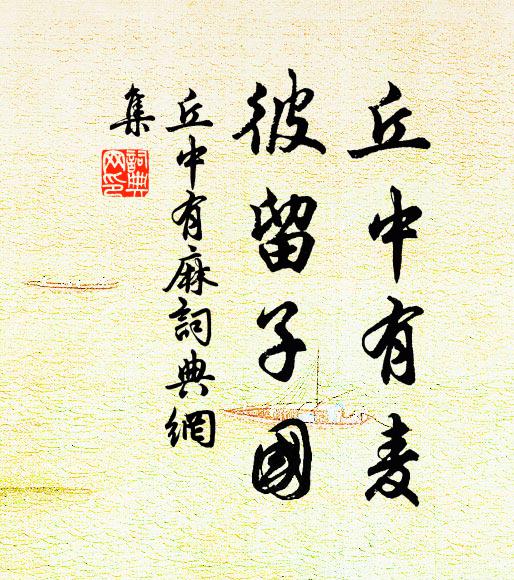 丘中有麦
彼留子國
丘中有麻詞典網
集
詞典
网印